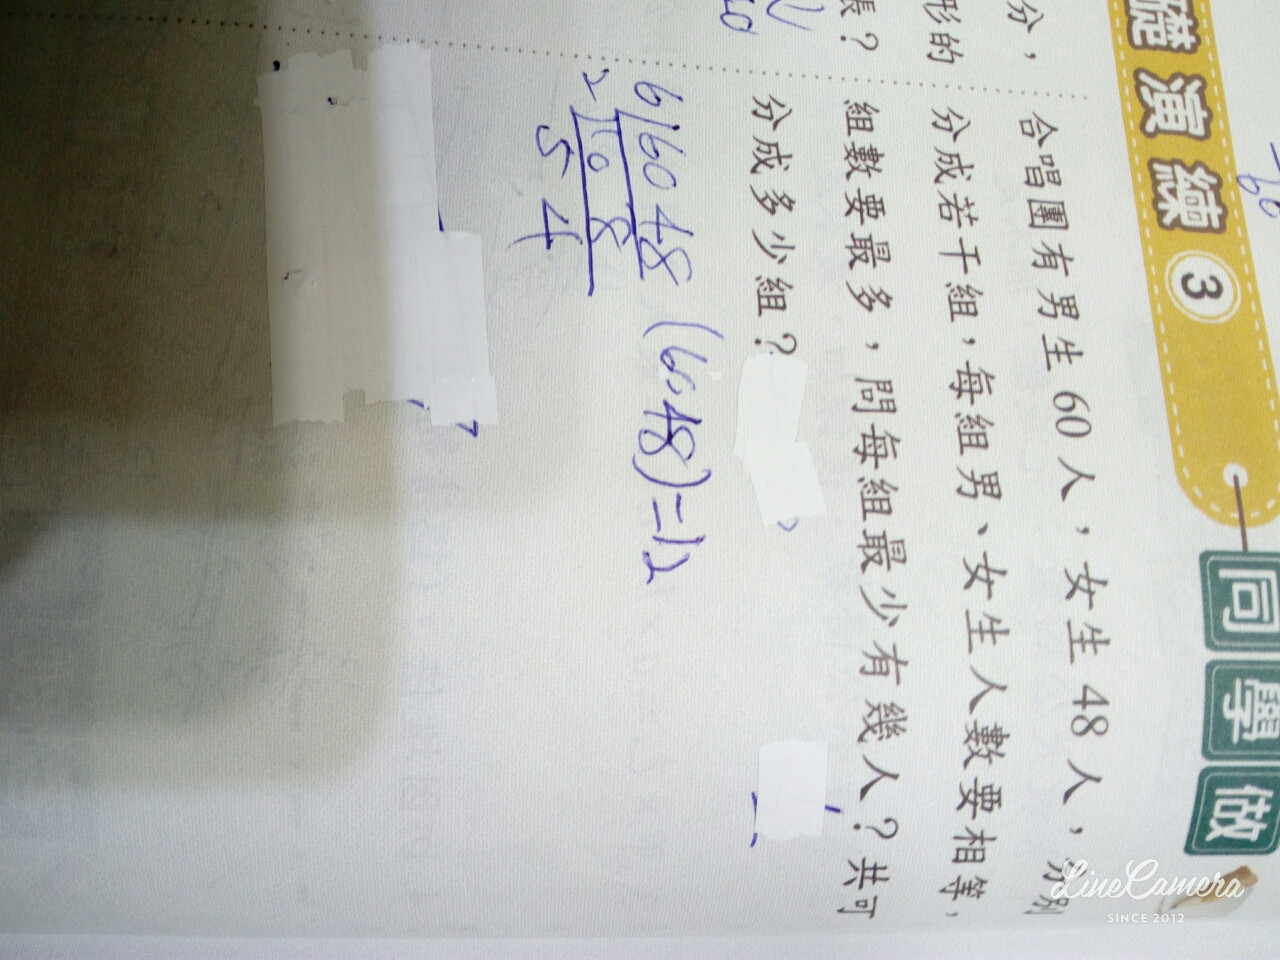 礎演練 3
同學做
合唱團有男生60人，女生48人，分別
分成若干組，每組男、女生人數要相等，
組數要最多，問每組最少有幾人？共可
分成多少組？
分，
形的
張？
6 | 60 48
2 | 10 8
5 4
(60,48)=12
LineCamera
SINCE 2012